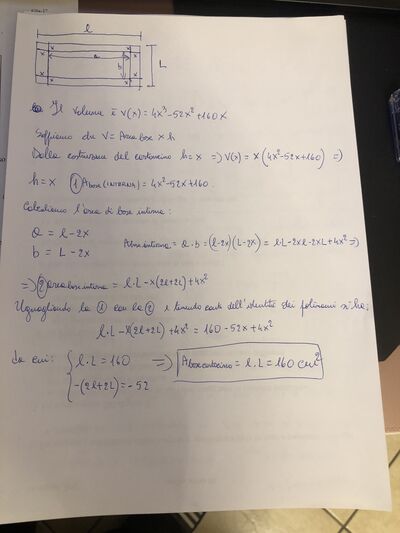 l
x x
a
x x
b
L
x x
Il volume è V(x) = 4x³-52x²+160x
Sappiamo che V= Area base x h
Dalla costruzione del cartoncino h=x => V(x) = x(4x²-52x+160) =>
h=x ① Abase (INTERNA) = 4x²-52x+160.
Calcoliamo l'area di base interna:
a = l-2x
b = L-2x
Abase interna = a·b = (l-2x)(L-2x) = l·L-2xl-2xL+4x² =>
=> ② area base interna = l·L-x(2l+2L)+4x²
Uguagliando la ① con la ② e tenendo conto dell'identità dei polinomi si ha:
l·L-x(2l+2L)+4x² = 160-52x+4x²
da cui: { l·L=160 => Abase cartoncino = l·L = 160 cm²
-(2l+2L)=-52